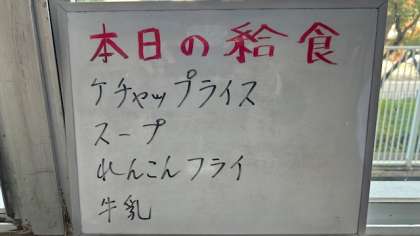 本日の給食
ケチャップライス
スープ
れんこんフライ
牛乳